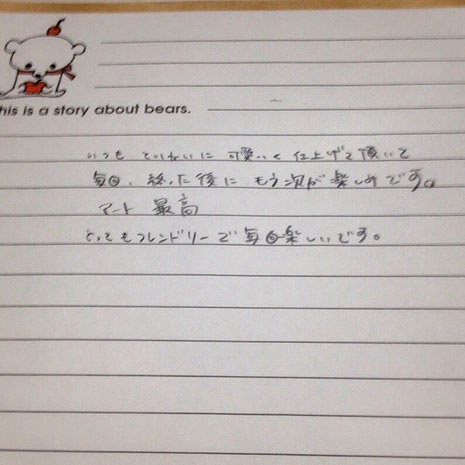 his is a story about bears.
いつも ていねいに 可愛いく 仕上げて頂いて
毎回、終った後に もう次が楽しみです。
アート 最高
とってもフレンドリーで毎回楽しいです。